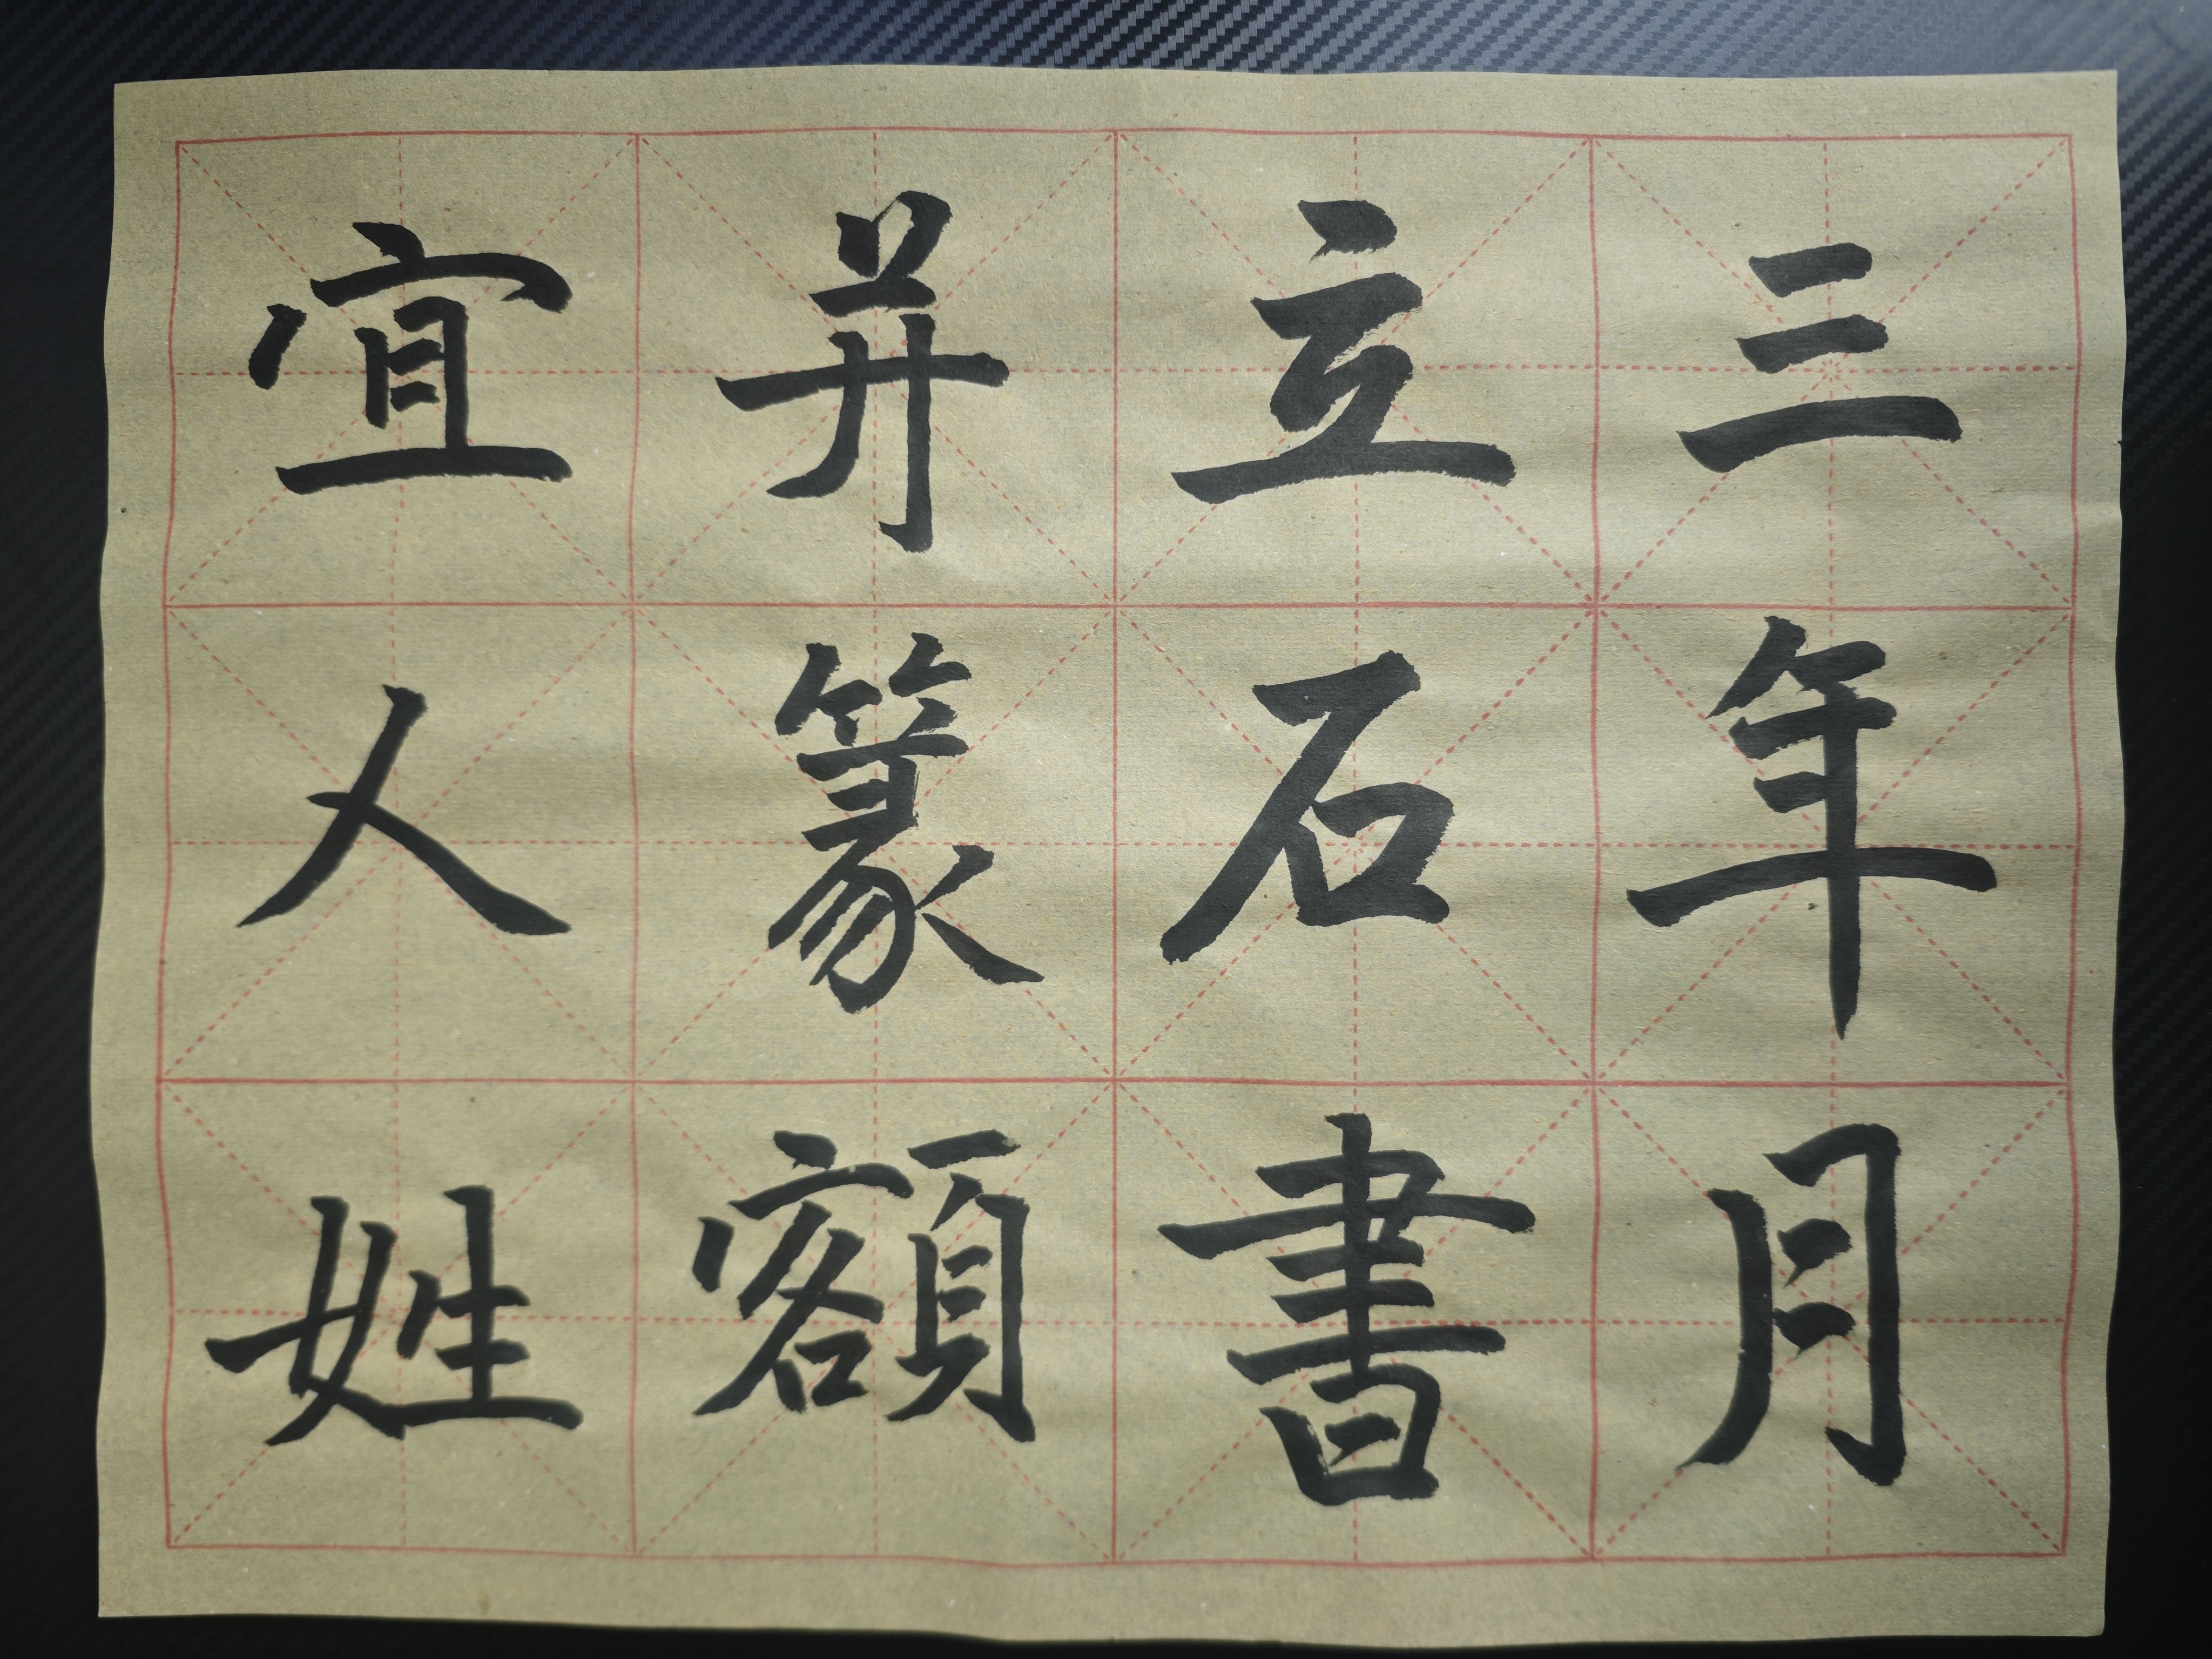 三年月
立石書
并篆額
宜人姓